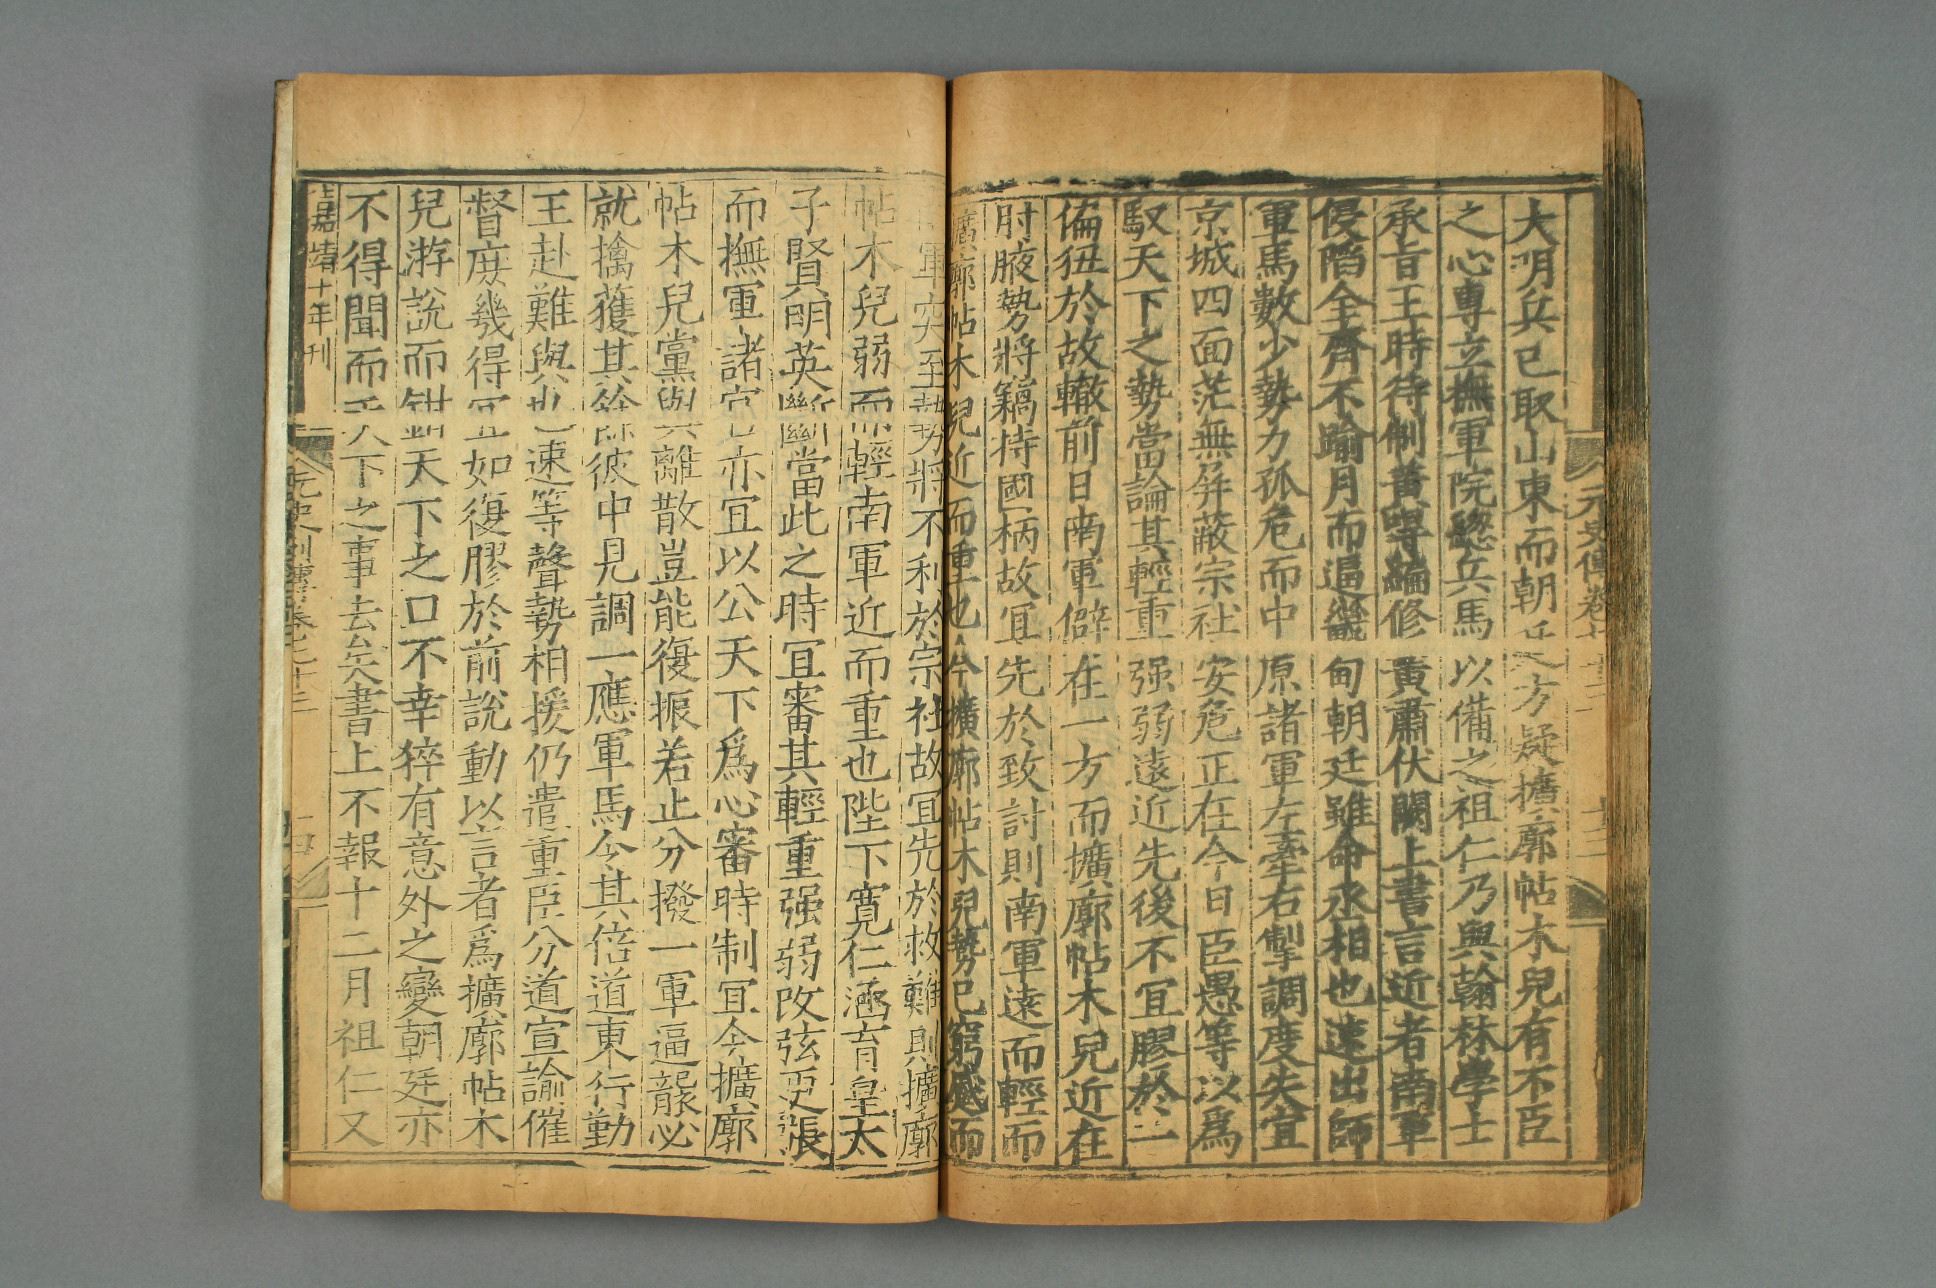 大明兵已取山東而朝廷方疑擴廓帖木兒有不臣
之心專立撫軍院緫兵馬以備之祖仁乃與翰林學士
承旨王時待制黃㖟編修黃肅伏闕上書言近者南軍
侵陷全齊不踰月而逼畿甸朝廷雖命丞相也速出師
軍馬數少勢力孤危而中原諸軍左牽右掣調度失宜
京城四面茫無屏蔽宗社安危正在今日臣愚等以爲
馭天下之勢當論其輕重强弱遠近先後不宜膠於一
偏狃於故轍前日南軍僻在一方而擴廓帖木兒近在
肘腋勢將竊持國柄故宜先於致討則南軍遠而輕而
擴廓帖木兒近而重也今擴廓帖木兒勢已窮蹙而
南軍突至勢將不利於宗社故宜先於救難則擴廓
帖木兒弱而輕南軍近而重也陛下寬仁涵育皇太
子賢明英斷當此之時宜審其輕重强弱改弦更張
而撫軍諸官亦宜以公天下爲心審時制宜今擴廓
帖木兒黨與離散豈能復振若止分撥一軍逼襲必
就擒獲其餘彼中見調一應軍馬令其倍道東行勤
王赴難與也速等聲勢相援仍遣重臣分道宣諭催
督庶幾得宜如復膠於前說動以言者爲擴廓帖木
兒游說而鉗天下之口不幸猝有意外之變朝廷亦
不得聞而天下之事去矣書上不報十二月祖仁又
嘉靖十年刊
元史列傳卷七十三
十四